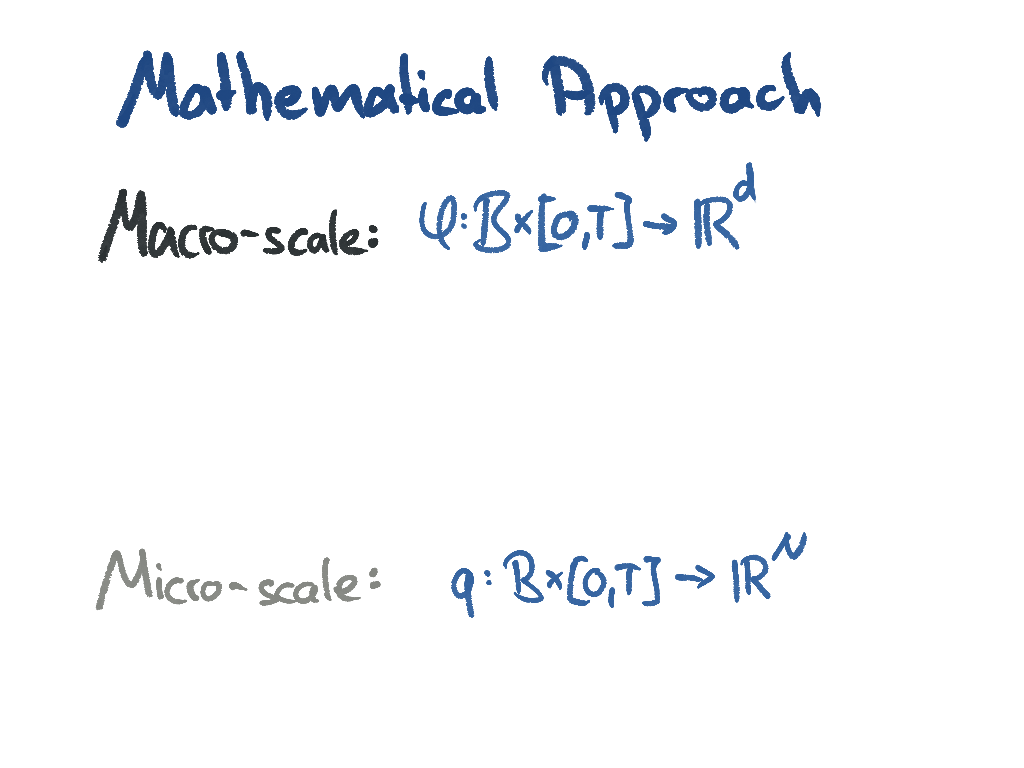 Mathematical Approach
Macro-scale: φ: B×[0,T] → ℝ^d
Micro-scale: q: B×[0,T] → ℝ^N